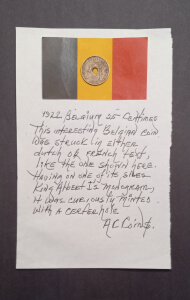 1922 Belgium 25 Centimes
This interesting Belgian coin
was struck in either
dutch or french text,
like the one shown here.
Having on one of its sides
King Albert I's monogram,
it was curiously minted
with a center hole
A.C. Coins.